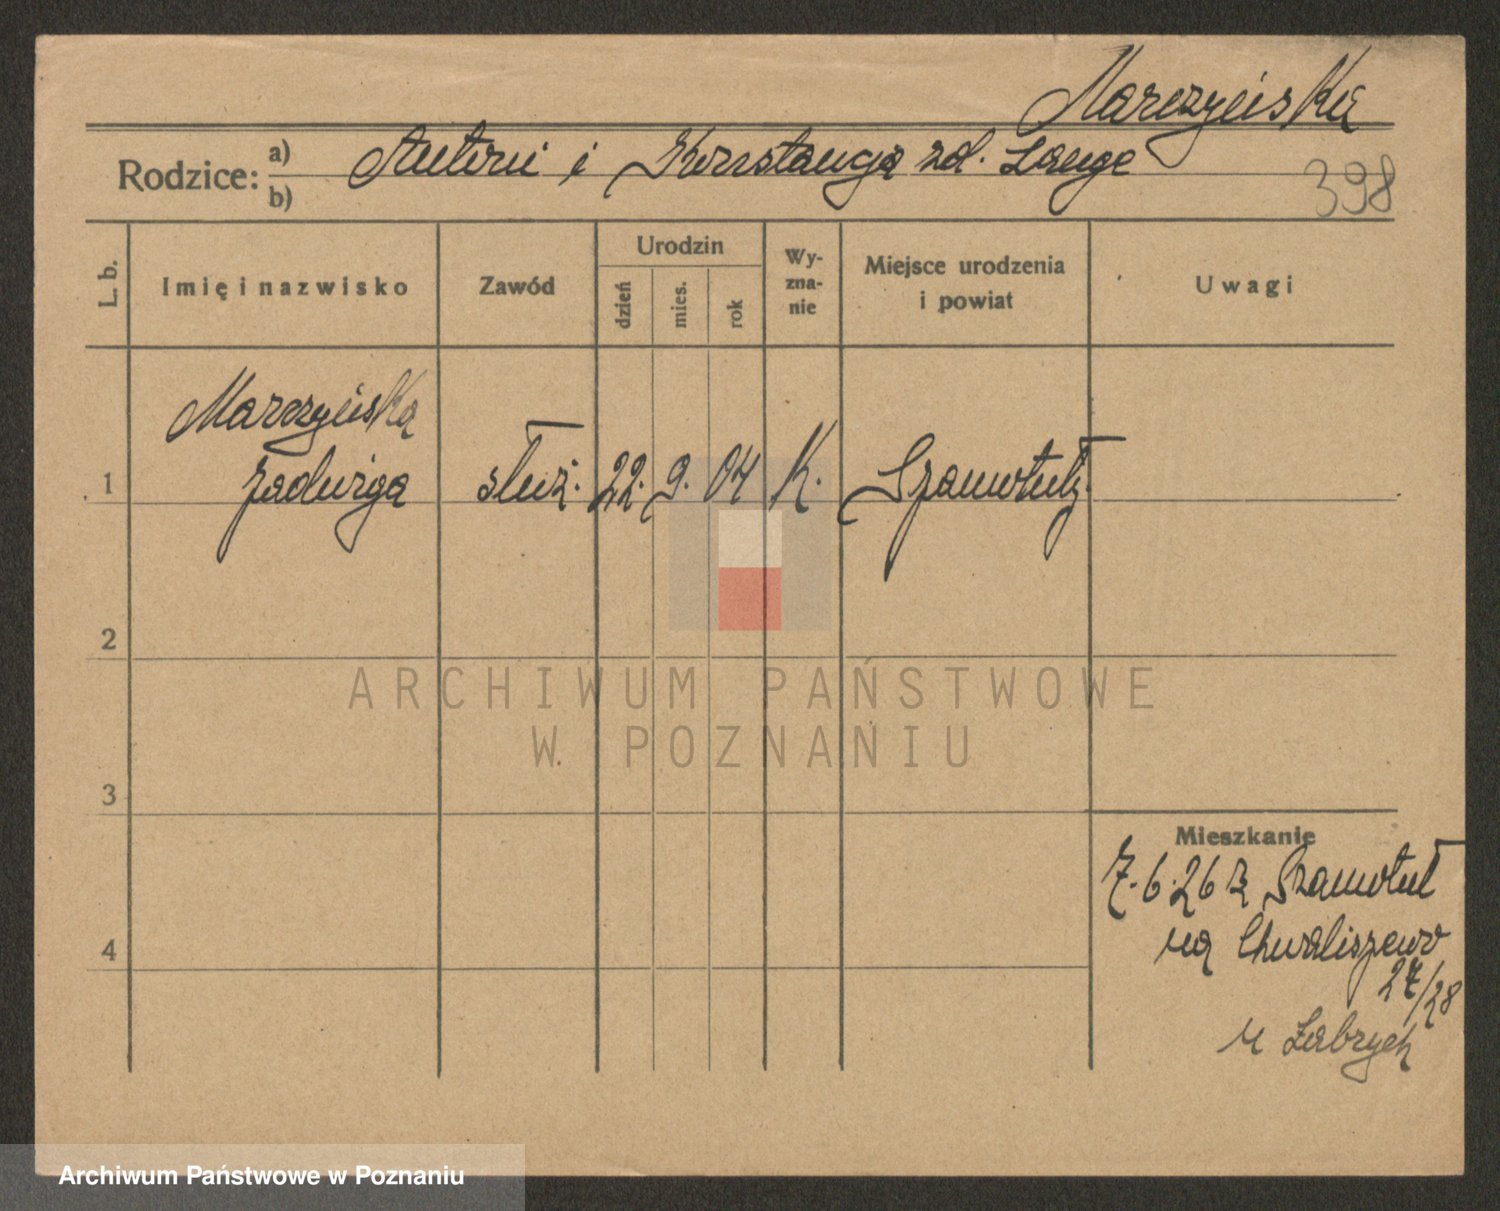 Marczyńska
Rodzice: a) Antoni i Konstancja zd. Lange
b)
398
L. b.
Imię i nazwisko
Zawód
Urodzin
dzień
mies.
rok
Wy-
zna-
nie
Miejsce urodzenia
i powiat
Uwagi
Marczyńska
1 Jadwiga służ. 22. 9. 04 K. Szamotuły
2
3
4
Mieszkanie
7.6.26 z Szamotuł
na Chwaliszewo
27/28
u
ARCHIWUM PAŃSTWOWE
W POZNANIU
Archiwum Państwowe w Poznaniu